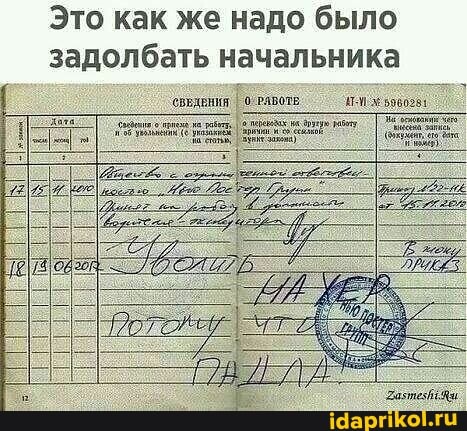 Это как же надо было
задолбать начальника
СВЕДЕНИЯ О РАБОТЕ АТ-VI № 5960281
№ записи
Дата
число месяц год
Сведения о приеме на работу, о переводах на другую работу
и об увольнении (с указанием причин и со ссылкой
на статью, пункт закона)
На основании чего
внесена запись
(документ, его дата
и номер)
1 2 3 4
Общество с ограниченной ответствен-
17 15 11 2010 ностью „Нью Постер Групп"
Принят на работу в должности
водителя-экспедитора
Приказ №32-НК
от 15.11.2010
18 19 06 2012 Уволить
В жопу
ПРИКАЗ
НА ХЕР
ПОТОМУ ЧТО
ПАДЛА!
НЬЮ ПОСТЕР
ГРУПП
12
Zasmeshi.Ru
idaprikol.ru